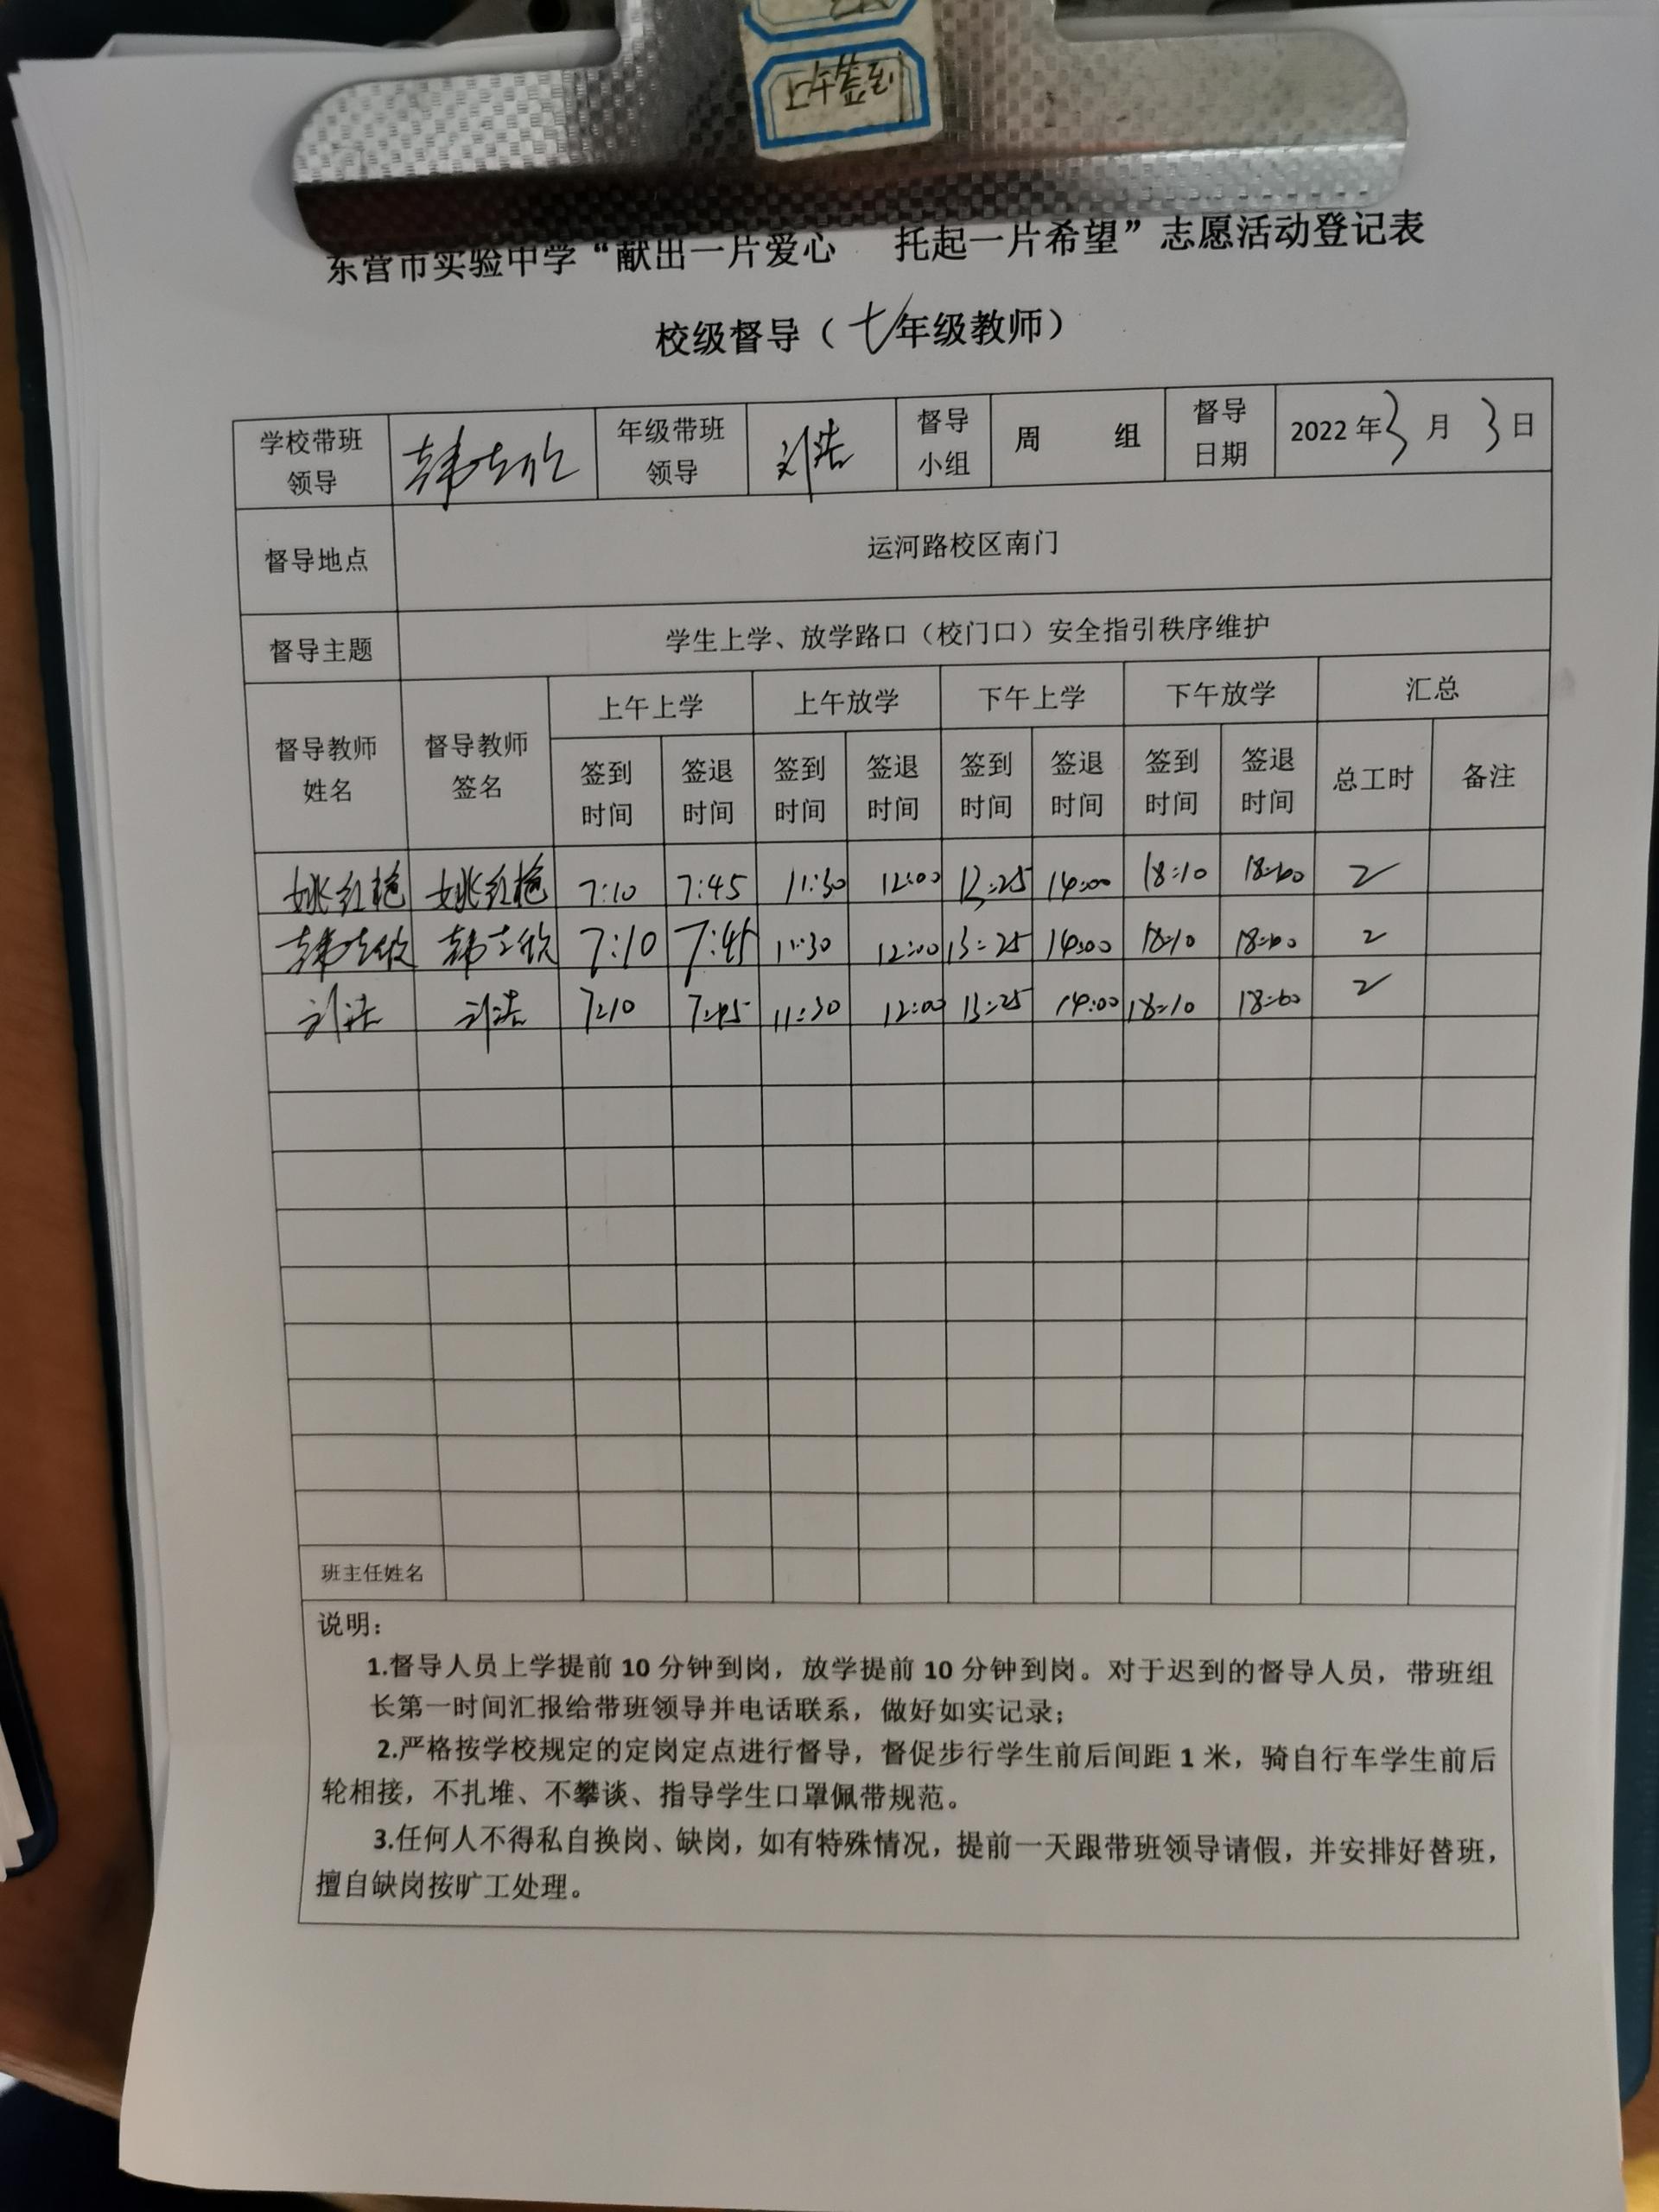 上午签到
东营市实验中学“献出一片爱心 托起一片希望”志愿活动登记表
校级督导（七年级教师）
学校带班领导 年级带班领导 刘浩 督导小组 周 组 督导日期 2022年3月3日
督导地点 运河路校区南门
督导主题 学生上学、放学路口（校门口）安全指引秩序维护
督导教师姓名 督导教师签名 上午上学 上午放学 下午上学 下午放学 汇总
签到时间 签退时间 签到时间 签退时间 签到时间 签退时间 签到时间 签退时间 总工时 备注
姚红艳 姚红艳 7:10 7:45 11:30 12:00 13:25 14:00 18:10 2
7:10 7:45 11:30 12:00 13:25 14:00 18:10 2
刘浩 刘浩 7:10 7:45 11:30 12:00 13:25 14:00 18:10 2
班主任姓名
说明：
1.督导人员上学提前10分钟到岗，放学提前10分钟到岗。对于迟到的督导人员，带班组
长第一时间汇报给带班领导并电话联系，做好如实记录；
2.严格按学校规定的定岗定点进行督导，督促步行学生前后间距1米，骑自行车学生前后
轮相接，不扎堆、不攀谈、指导学生口罩佩带规范。
3.任何人不得私自换岗、缺岗，如有特殊情况，提前一天跟带班领导请假，并安排好替班，
擅自缺岗按旷工处理。